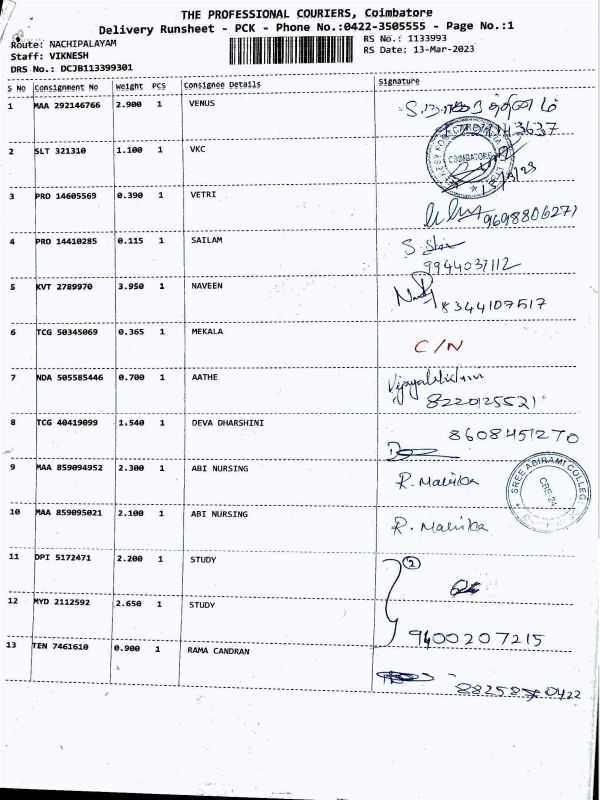 THE PROFESSIONAL COURIERS, Coimbatore
Delivery Runsheet - PCK - Phone No.:0422-3505555 - Page No.:1
Route: NACHIPALAYAM
RS No.: 1133993
Staff: VIKNESH
RS Date: 13-Mar-2023
DRS No.: DCJB113399301
S No Consignment No Weight PCS Consignee Details Signature
1 MAA 292146766 2.900 1 VENUS
2 SLT 321310 1.100 1 VKC
COIMBATORE
3 PRO 14605569 0.390 1 VETRI
9698806271
4 PRO 14410285 0.115 1 SAILAM
9944037112
5 KVT 2789970 3.950 1 NAVEEN
8344107517
6 TCG 50345069 0.365 1 MEKALA C/N
7 NDA 505585446 0.700 1 AATHE
8220125521
8 TCG 40419099 1.540 1 DEVA DHARSHINI 8608451270
9 MAA 859094952 2.300 1 ABI NURSING R. Malika
SREE ABIRAMI COLLEGE
CBE-24
10 MAA 859095021 2.100 1 ABI NURSING R. Malika
11 DPI 5172471 2.200 1 STUDY 2
12 MYD 2112592 2.650 1 STUDY
9400207215
13 TEN 7461610 0.900 1 RAMA CANDRAN